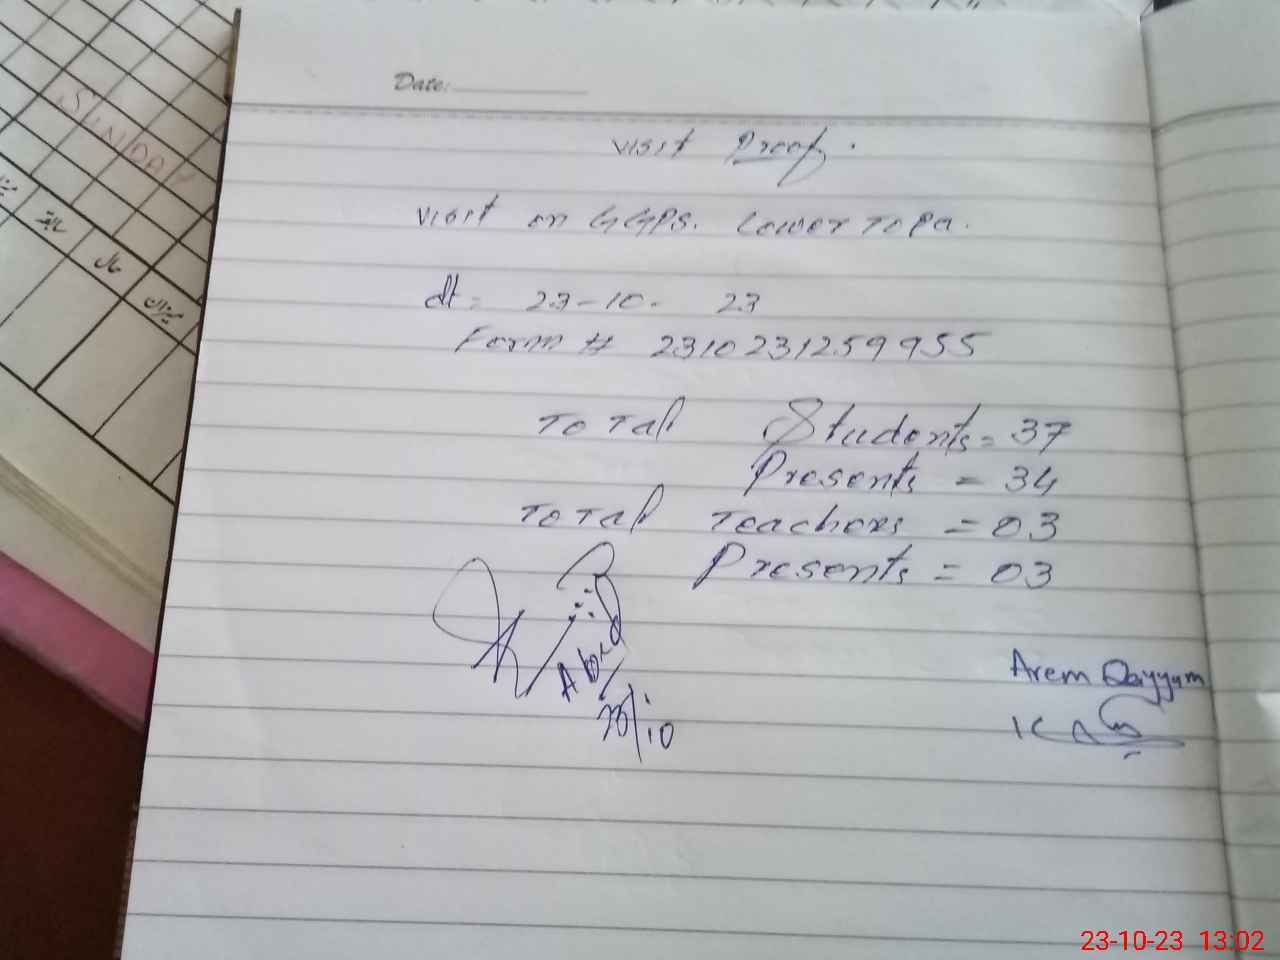 Date:
visit Proof.
visit on GGPS. Lower Topa.
dt: 23-10. 23
Form # 2310231259955
Total Students = 37
Presents = 34
Total Teachers = 03
Presents = 03
Abid
23/10
Arem Qayyum
SUNDAY
سابقہ
حال
میزان
23-10-23 13:02